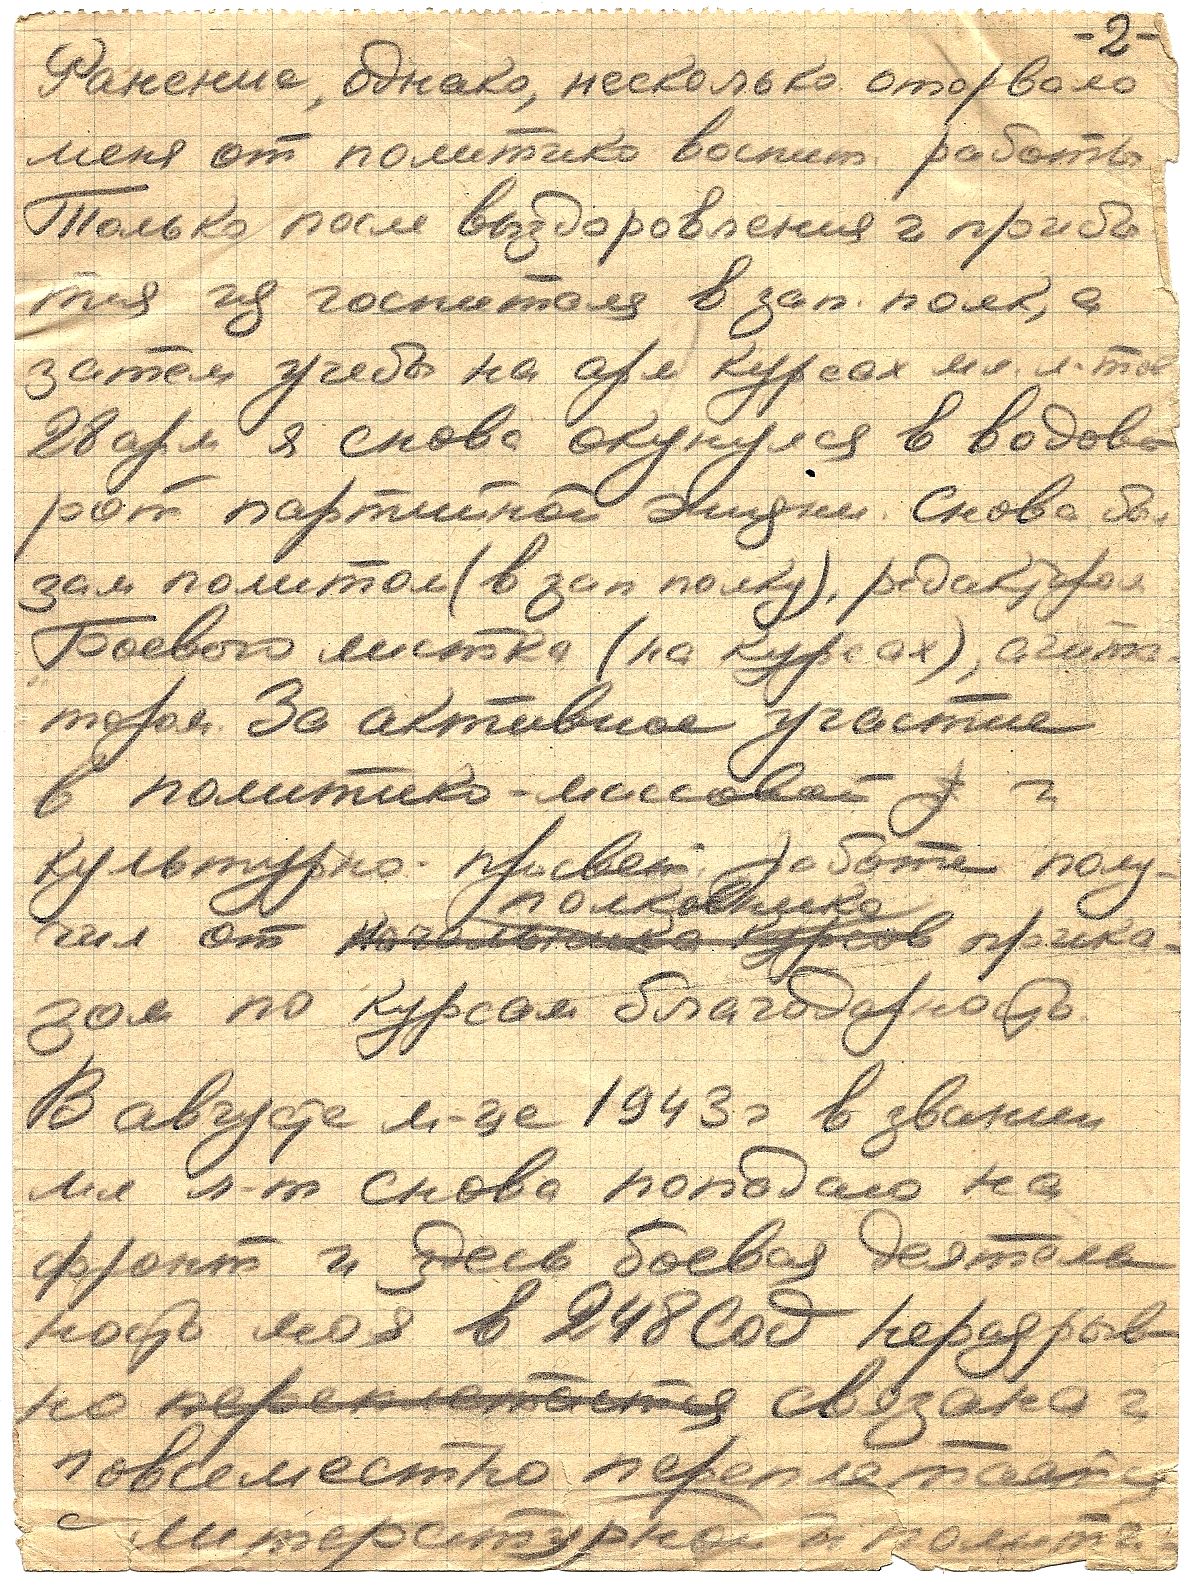 -2-
Ранение, однако, несколько оторвало
меня от политико воспит. работы
Только после выздоровления и прибы-
тия из госпиталя в зап. полк, а
затем учебы на арм курсах мл. л-тов
28 арм я снова окунулся в водово-
рот партийной жизни. Снова был
зам политом (в зап полку), редактором
Боевого листка (на курсах), агита-
тором. За активное участие
в политико-массовой и
культурно-просвет. работе полу-
полковника
чил от начальника курсов прика-
зом по курсам благодарность.
В августе м-це 1943 г в звании
мл л-т снова попадаю на
фронт и здесь боевая деятель
ность моя в 248 СОД неразрыв-
но переплетается связана и
повсеместно переплетается
с литературной и полити-